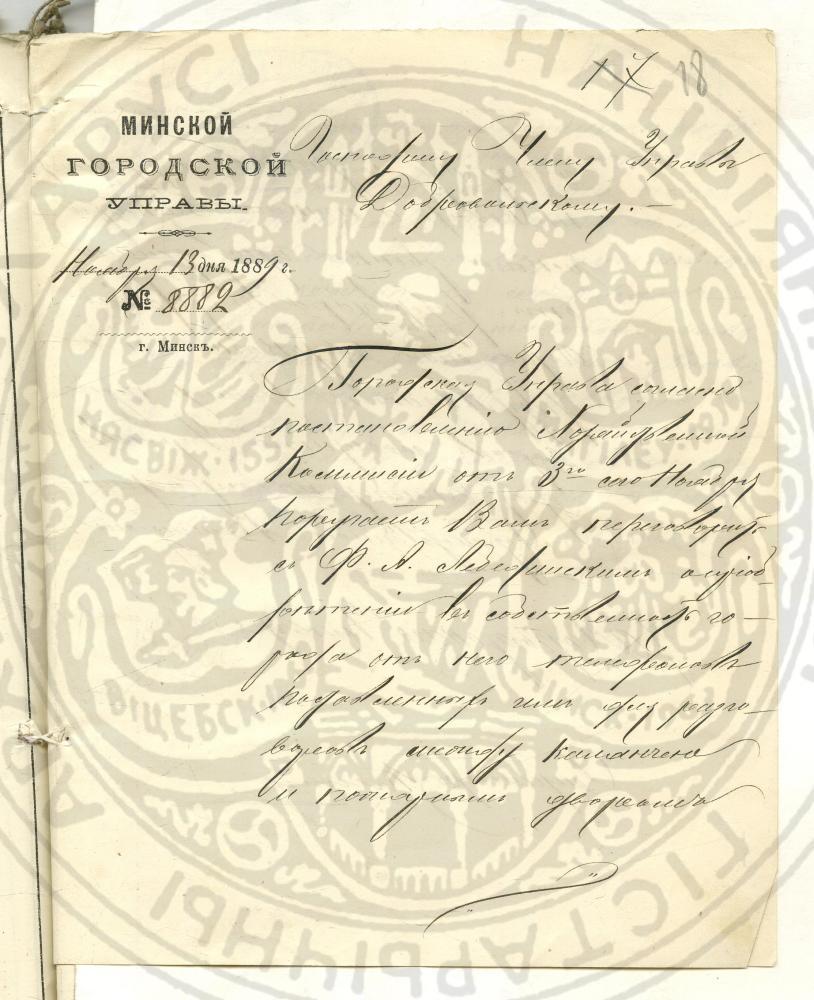 17 18
МИНСКОЙ
ГОРОДСКОЙ
УПРАВЫ.
Ноября 13 дня 1889 г.
№ 8882
г. Минскъ.
Господину Члену Управы
Добровольскому. —
Городская Управа согласно
постановленію Хозяйственной
Коммисіи отъ 3го сего Ноября
поручаетъ Вамъ переговорить
съ Ф. А. о пріоб-
рѣтеніи въ собственность го-
рода отъ него телефоновъ
поставленныхъ имъ для разго-
воровъ между каланчею
и пожарнымъ дворомъ
НЯСВІЖ · 155
ВІЦЕБСКІ
ГІСТАРЫЧНЫ
БЕЛАРУСІ
НАЦЫЯНАЛЬНЫ